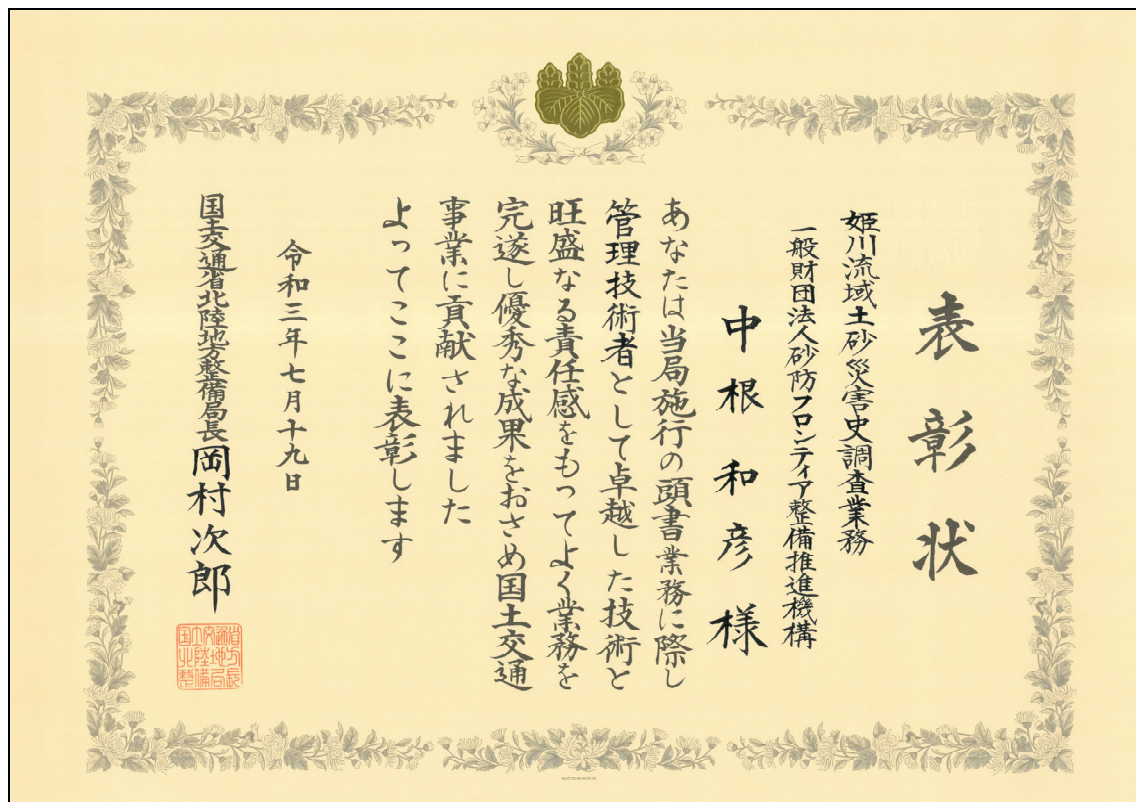 表彰状
姫川流域土砂災害史調査業務
一般財団法人砂防フロンティア整備推進機構
中根和彦様
あなたは当局施行の頭書業務に際し
管理技術者として卓越した技術と
旺盛なる責任感をもってよく業務を
完遂し優秀な成果をおさめ国土交通
事業に貢献されました
よってここに表彰します
令和三年七月十九日
国土交通省北陸地方整備局長岡村次郎